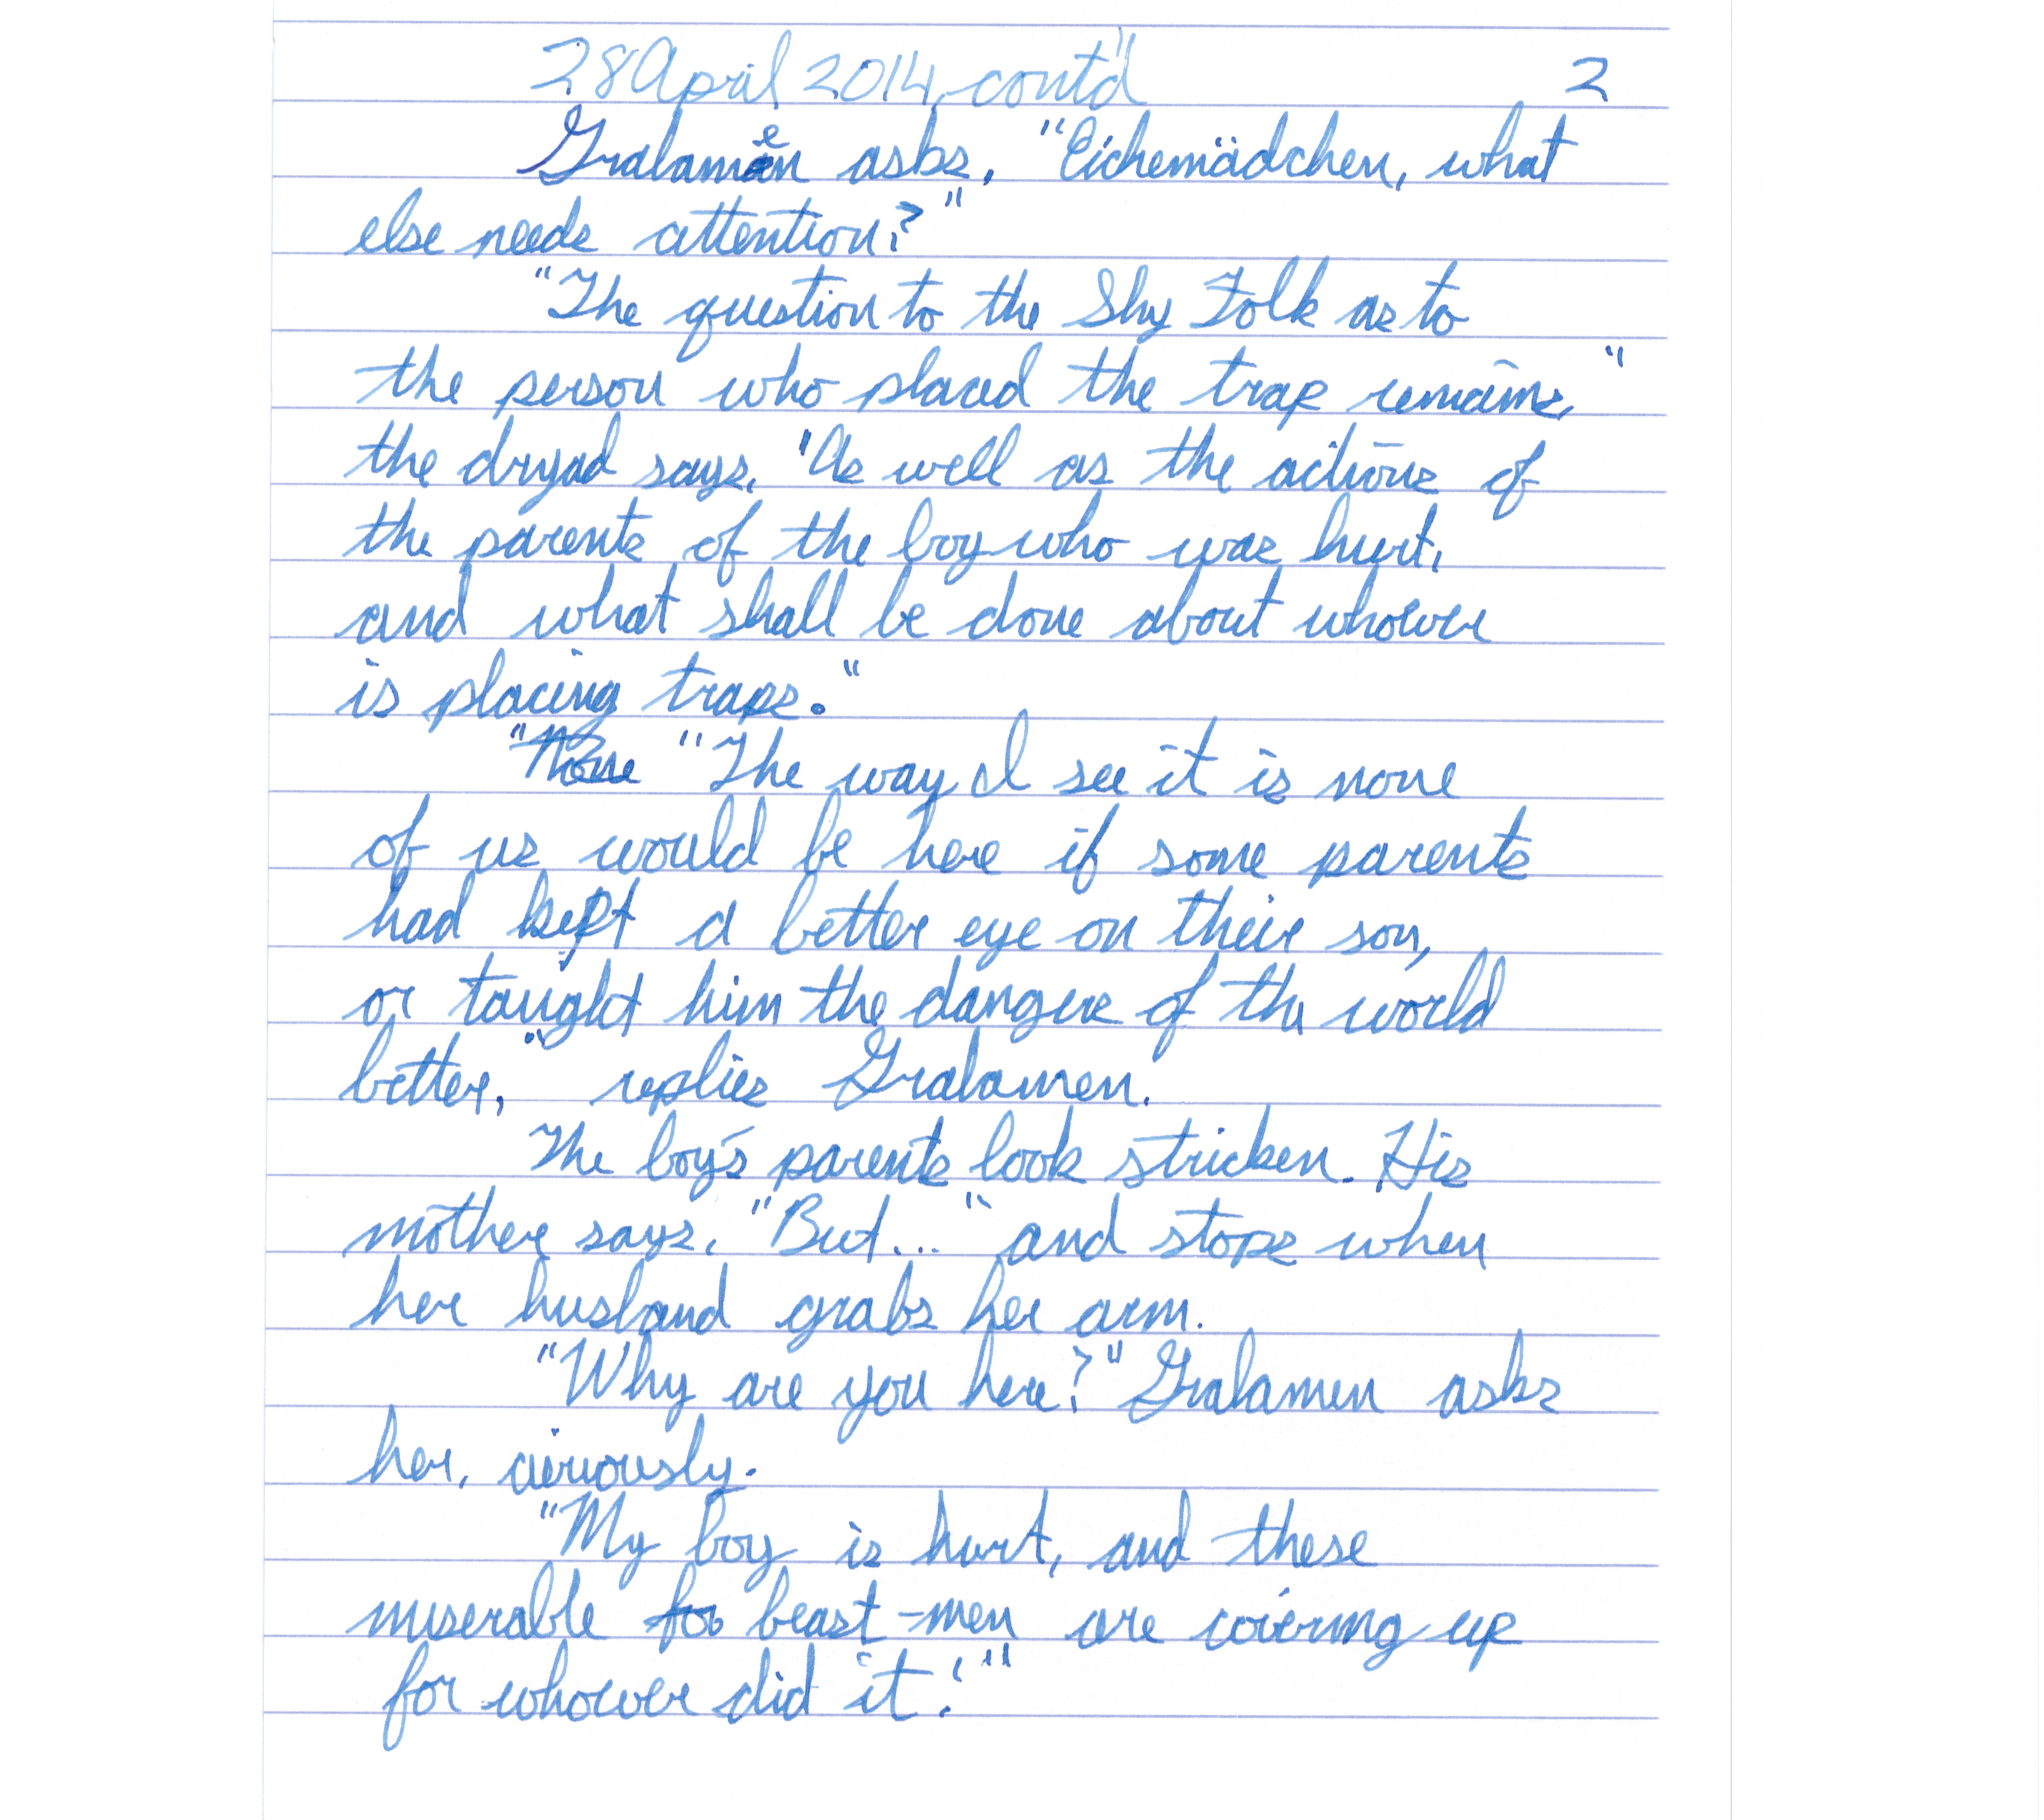 28 April 2014, cont'd 2
Gralamen asks, "Eichemädchen, what
else needs attention?"
"The question to the Shy Folk as to
the person who placed the trap remains,"
the dryad says. "As well as the actions of
the parents of the boy who was hurt,
and what shall be done about whoever
is placing traps."
"The way I see it is none
of us would be here if some parents
had kept a better eye on their son,
or taught him the dangers of the world
better," replies Gralamen.
The boy's parents look stricken. His
mother says, "But..." and stops when
her husband grabs her arm.
"Why are you here?" Gralamen asks
her, curiously.
"My boy is hurt, and these
miserable beast-men are covering up
for whoever did it!"